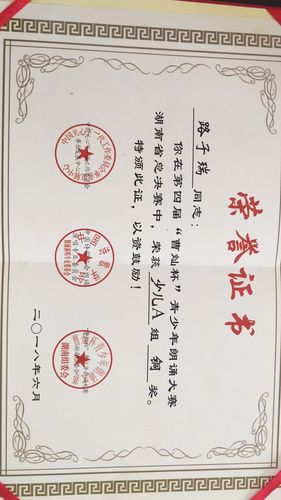 荣誉证书
路子瑞 同志：
你在第四届“曹灿杯”青少年朗诵大赛
湖南省总决赛中，荣获 少儿A 组 铜 奖。
特颁此证，以资鼓励！
湖南组委会
二〇一八年六月